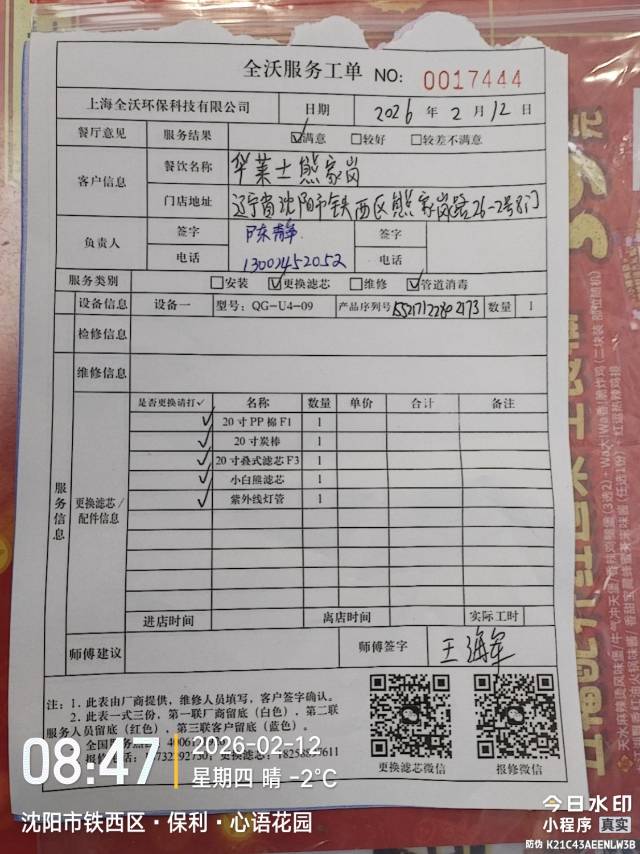 全沃服务工单 NO: 0017444
上海全沃环保科技有限公司 日期 2026 年 2 月 12 日
餐厅意见 服务结果 ☑满意 □较好 □较差不满意
客户信息 餐饮名称 华莱士熊家岗
门店地址 辽宁省沈阳市铁西区熊家岗路26-2号3门
负责人 签字 陈静 签字
电话 13002452052 电话
服务类别 □安装 ☑更换滤芯 □维修 ☑管道消毒
设备信息 设备一 型号: QG-U4-09 产品序列号 数量 1
检修信息
维修信息
服务信息 更换滤芯/配件信息
是否更换请打✓ 名称 数量 单价 合计 备注
✓ 20寸PP棉F1 1
✓ 20寸炭棒 1
✓ 20寸叠式滤芯F3 1
✓ 小白熊滤芯 1
✓ 紫外线灯管 1
进店时间 离店时间 实际工时
师傅建议 师傅签字 王海军
注: 1. 此表由厂商提供，维修人员填写，客户签字确认。
2. 此表一式三份，第一联厂商留底（白色），第二联
服务人员留底（红色），第三联客户留底（蓝色）。
全国
更换滤芯微信 报修微信
08:47 2026-02-12
星期四 晴 -2℃
沈阳市铁西区·保利·心语花园
今日水印
小程序 真实
防伪 K21C43AEENLW3B